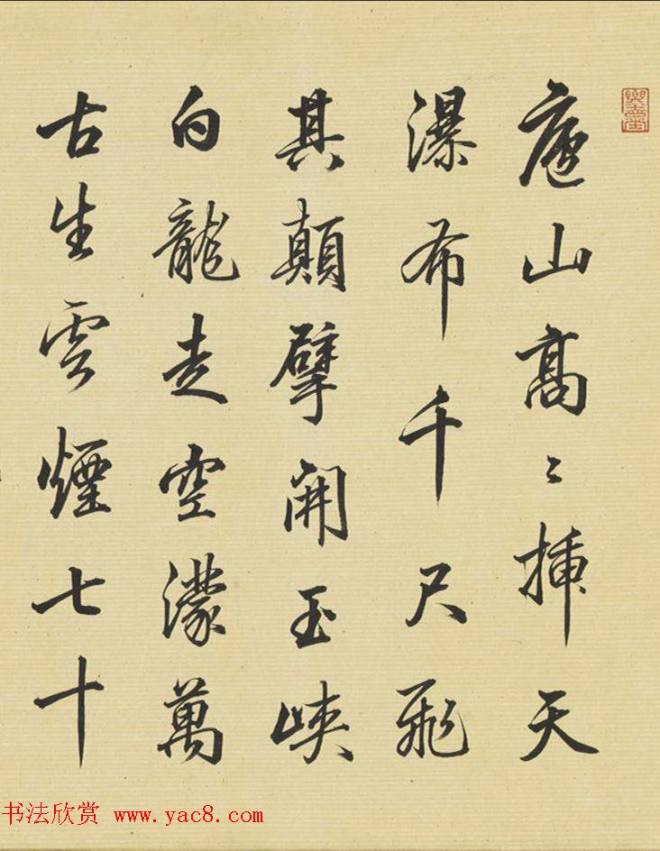 廬山高〻插天
瀑布千尺飛
其顛擘開玉峽
白龍走空濛萬
古生雲煙七十
书法欣赏 www.yac8.com